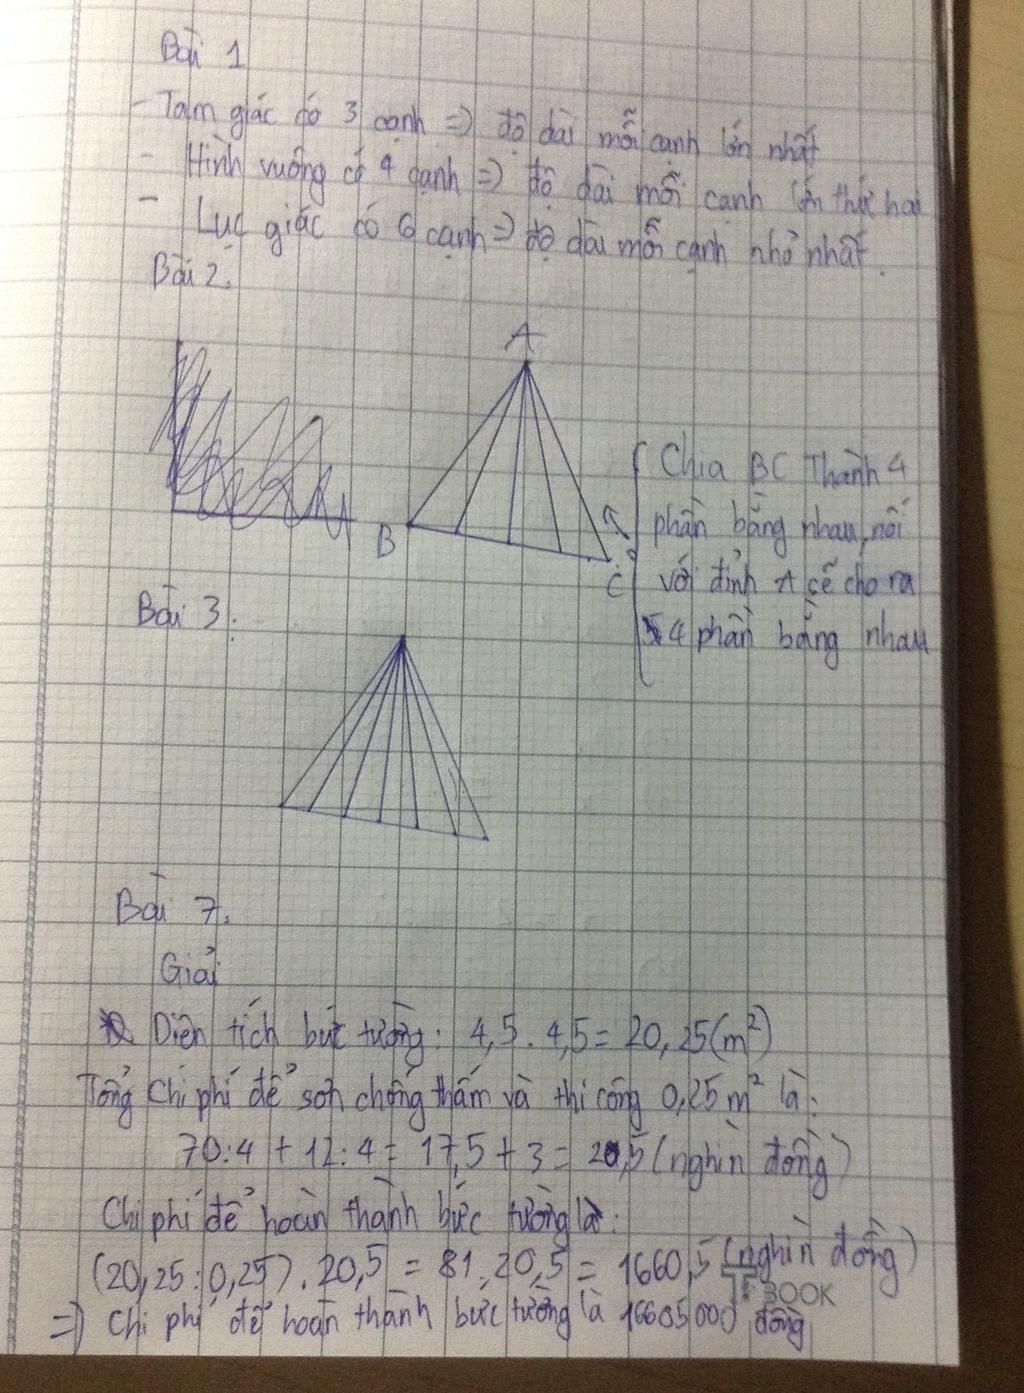 Bài 1
- Tam giác có 3 cạnh => độ dài mỗi cạnh lớn nhất
- Hình vuông có 4 cạnh => độ dài mỗi cạnh lớn thứ hai
- Lục giác có 6 cạnh => độ dài mỗi cạnh nhỏ nhất.
Bài 2:
A
B
C
Chia BC Thành 4
phần bằng nhau, nối
với đỉnh A sẽ cho ra
4 phần bằng nhau
Bài 3:
Bài 7.
Giải
Diện tích bức tường: 4,5 . 4,5 = 20,25 (m²)
Tổng Chi phí để sơn chống thấm và thi công 0,25 m² là:
70:4 + 12:4 = 17,5 + 3 = 20,5 (nghìn đồng)
Chi phí để hoàn thành bức tường là:
(20,25 : 0,25) . 20,5 = 81 . 20,5 = 1660,5 (nghìn đồng)
=> Chi phí để hoàn thành bức tường là 16605000 đồng
BOOK